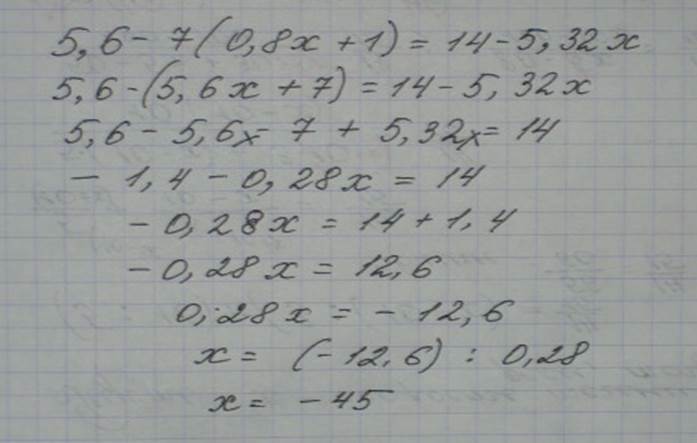 5,6 - 7(0,8x + 1) = 14 - 5,32x
5,6 - (5,6x + 7) = 14 - 5,32x
5,6 - 5,6x - 7 + 5,32x = 14
- 1,4 - 0,28x = 14
- 0,28x = 14 + 1,4
- 0,28x = 12,6
0,28x = - 12,6
x = (-12,6) : 0,28
x = - 45